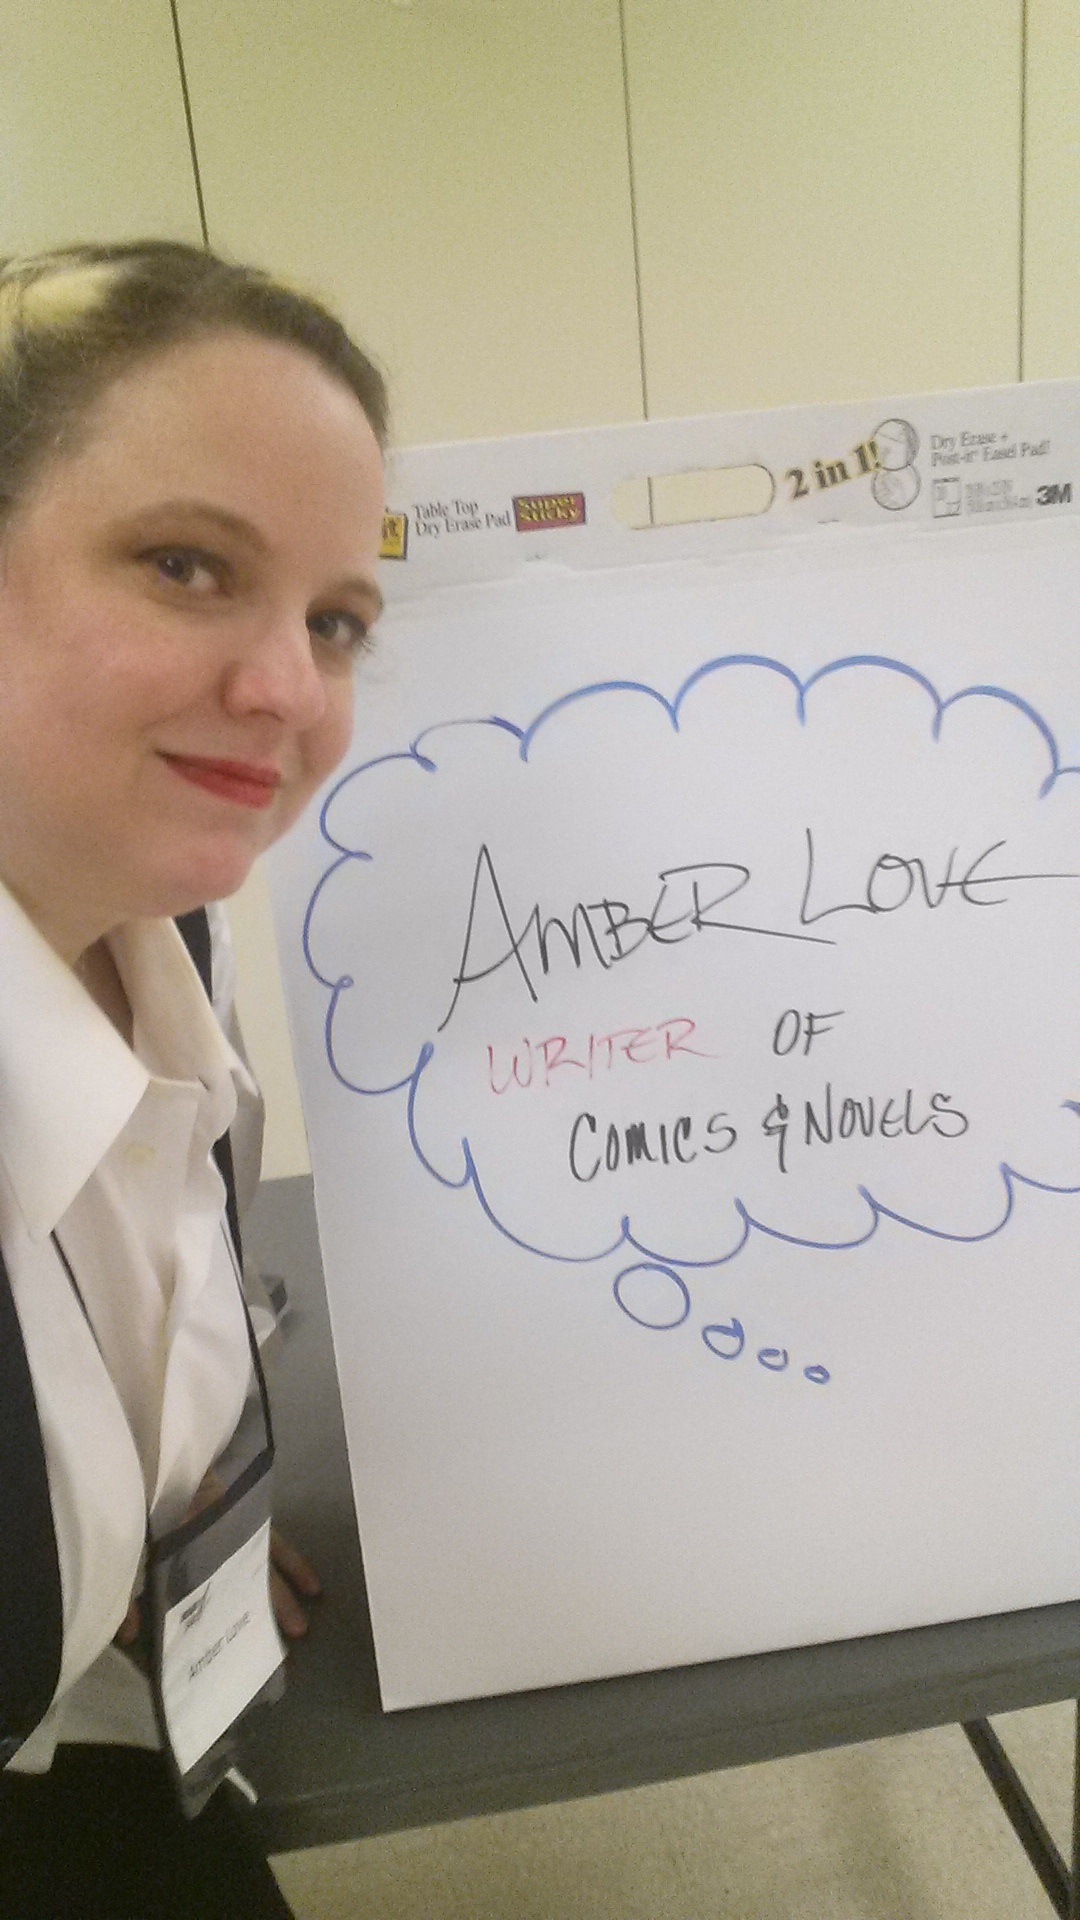 Table Top
Dry Erase Pad
Super
Sticky
2 in 1!
Dry Erase +
Post-it® Easel Pad!
3M
AMBER LOVE
WRITER OF
COMICS & NOVELS
Amber Love